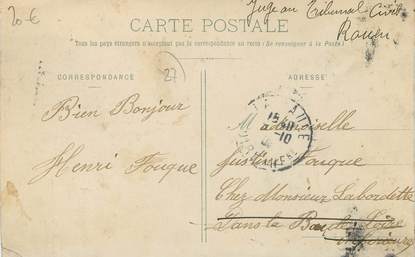 20 €
Juge au Tribunal Civil
Rouen
CARTE POSTALE
Tous les pays étrangers n'acceptent pas la correspondance au recto (Se renseigner à la Poste)
CORRESPONDANCE
27
ADRESSE
15
10
Bien Bonjour
Henri Fouque
Mademoiselle
Fouque
Chez Monsieur Labordette
Dans la
Loire
Inférieure